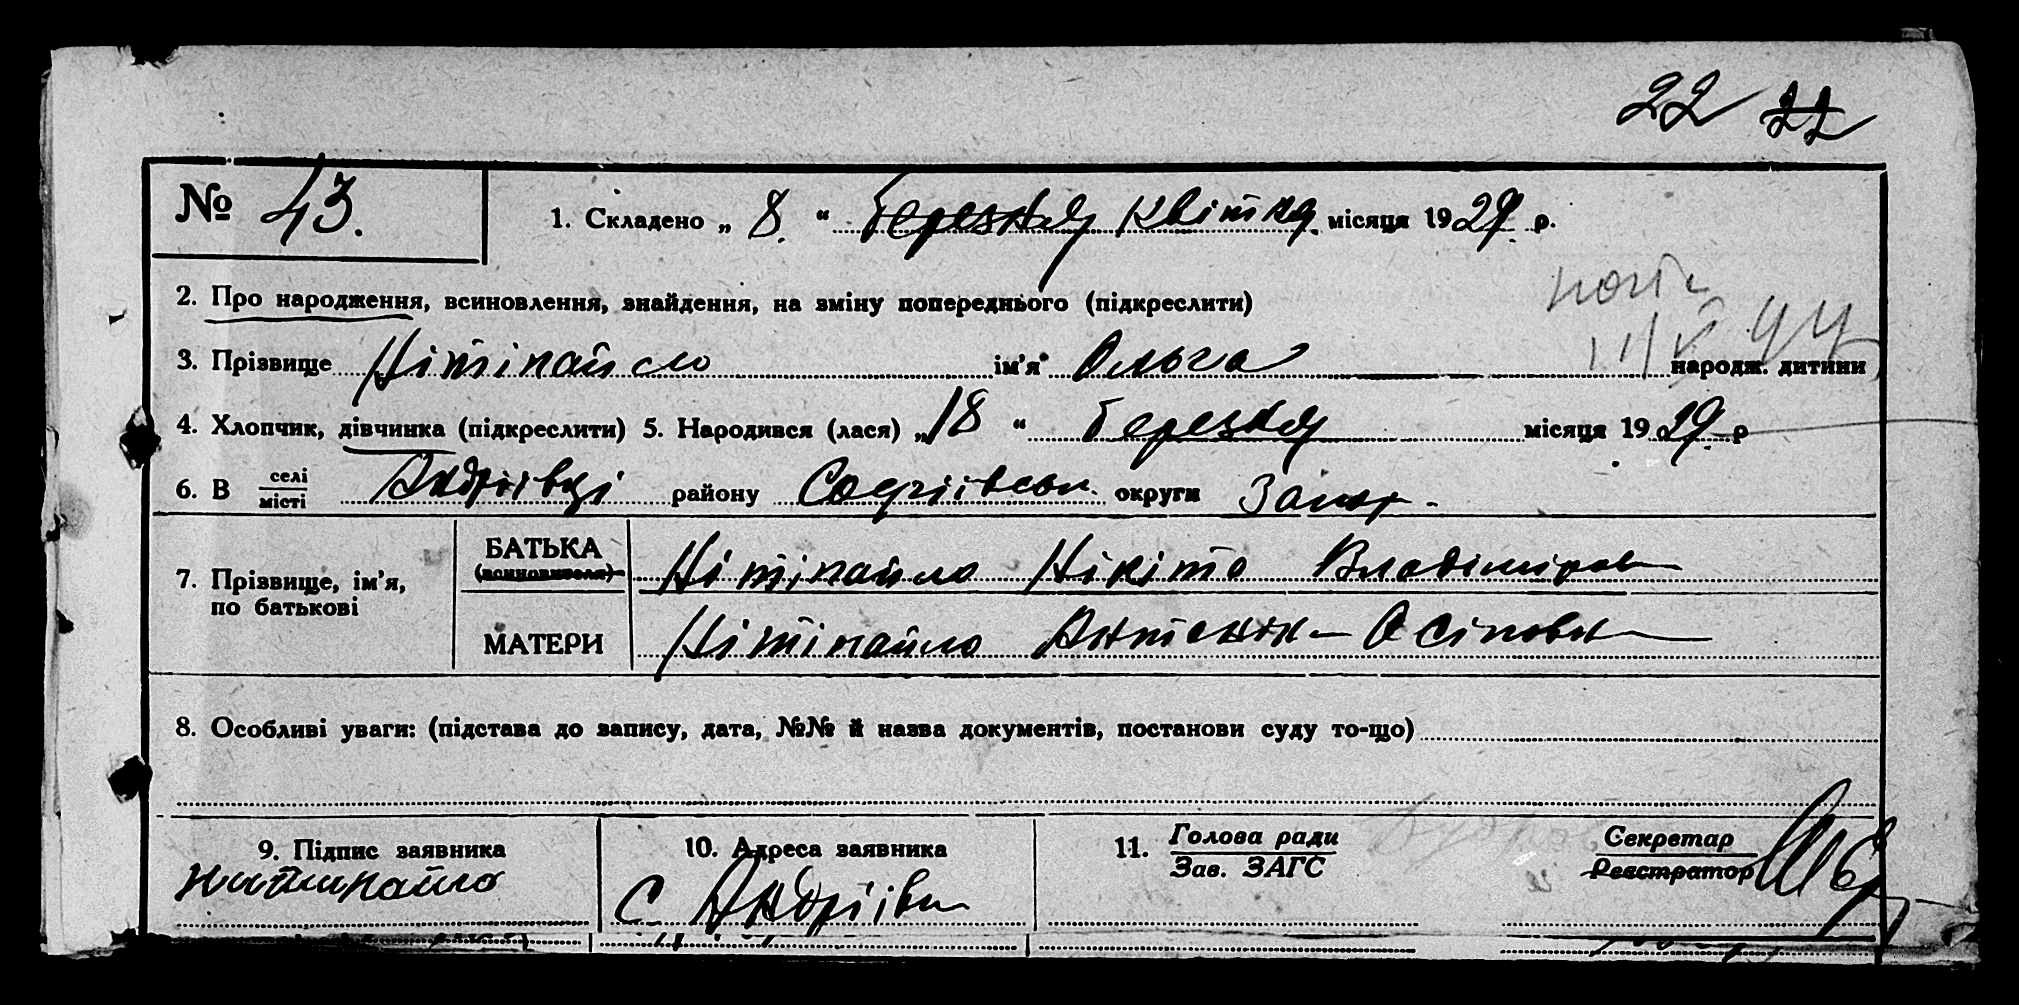 22 22
№ 43.
1. Складено „ 8. “ Березня Квітня місяця 1929. р.
2. Про народження, всиновлення, знайдення, на зміну попереднього (підкреслити)
3. Прізвище Нітіпайло ім'я Ольга народж. дитини
4. Хлопчик, дівчинка (підкреслити) 5. Народився (лася) „18 “ Березня місяця 1929. р
6. В селі
місті Андріївці району Софіївськ. округи Запор.
7. Прізвище, ім'я,
по батькові
БАТЬКА
(всиновителя)
Нітіпайло Нікіта Владіміров
МАТЕРИ Нітіпайло Антоніна Осіповна
8. Особливі уваги: (підстава до запису, дата, №№ й назва документів, постанови суду то-що)
9. Підпис заявника
Нитипайло
10. Адреса заявника
С Андріївк
11. Голова ради
Зав. ЗАГС
Секретар
Реєстратор